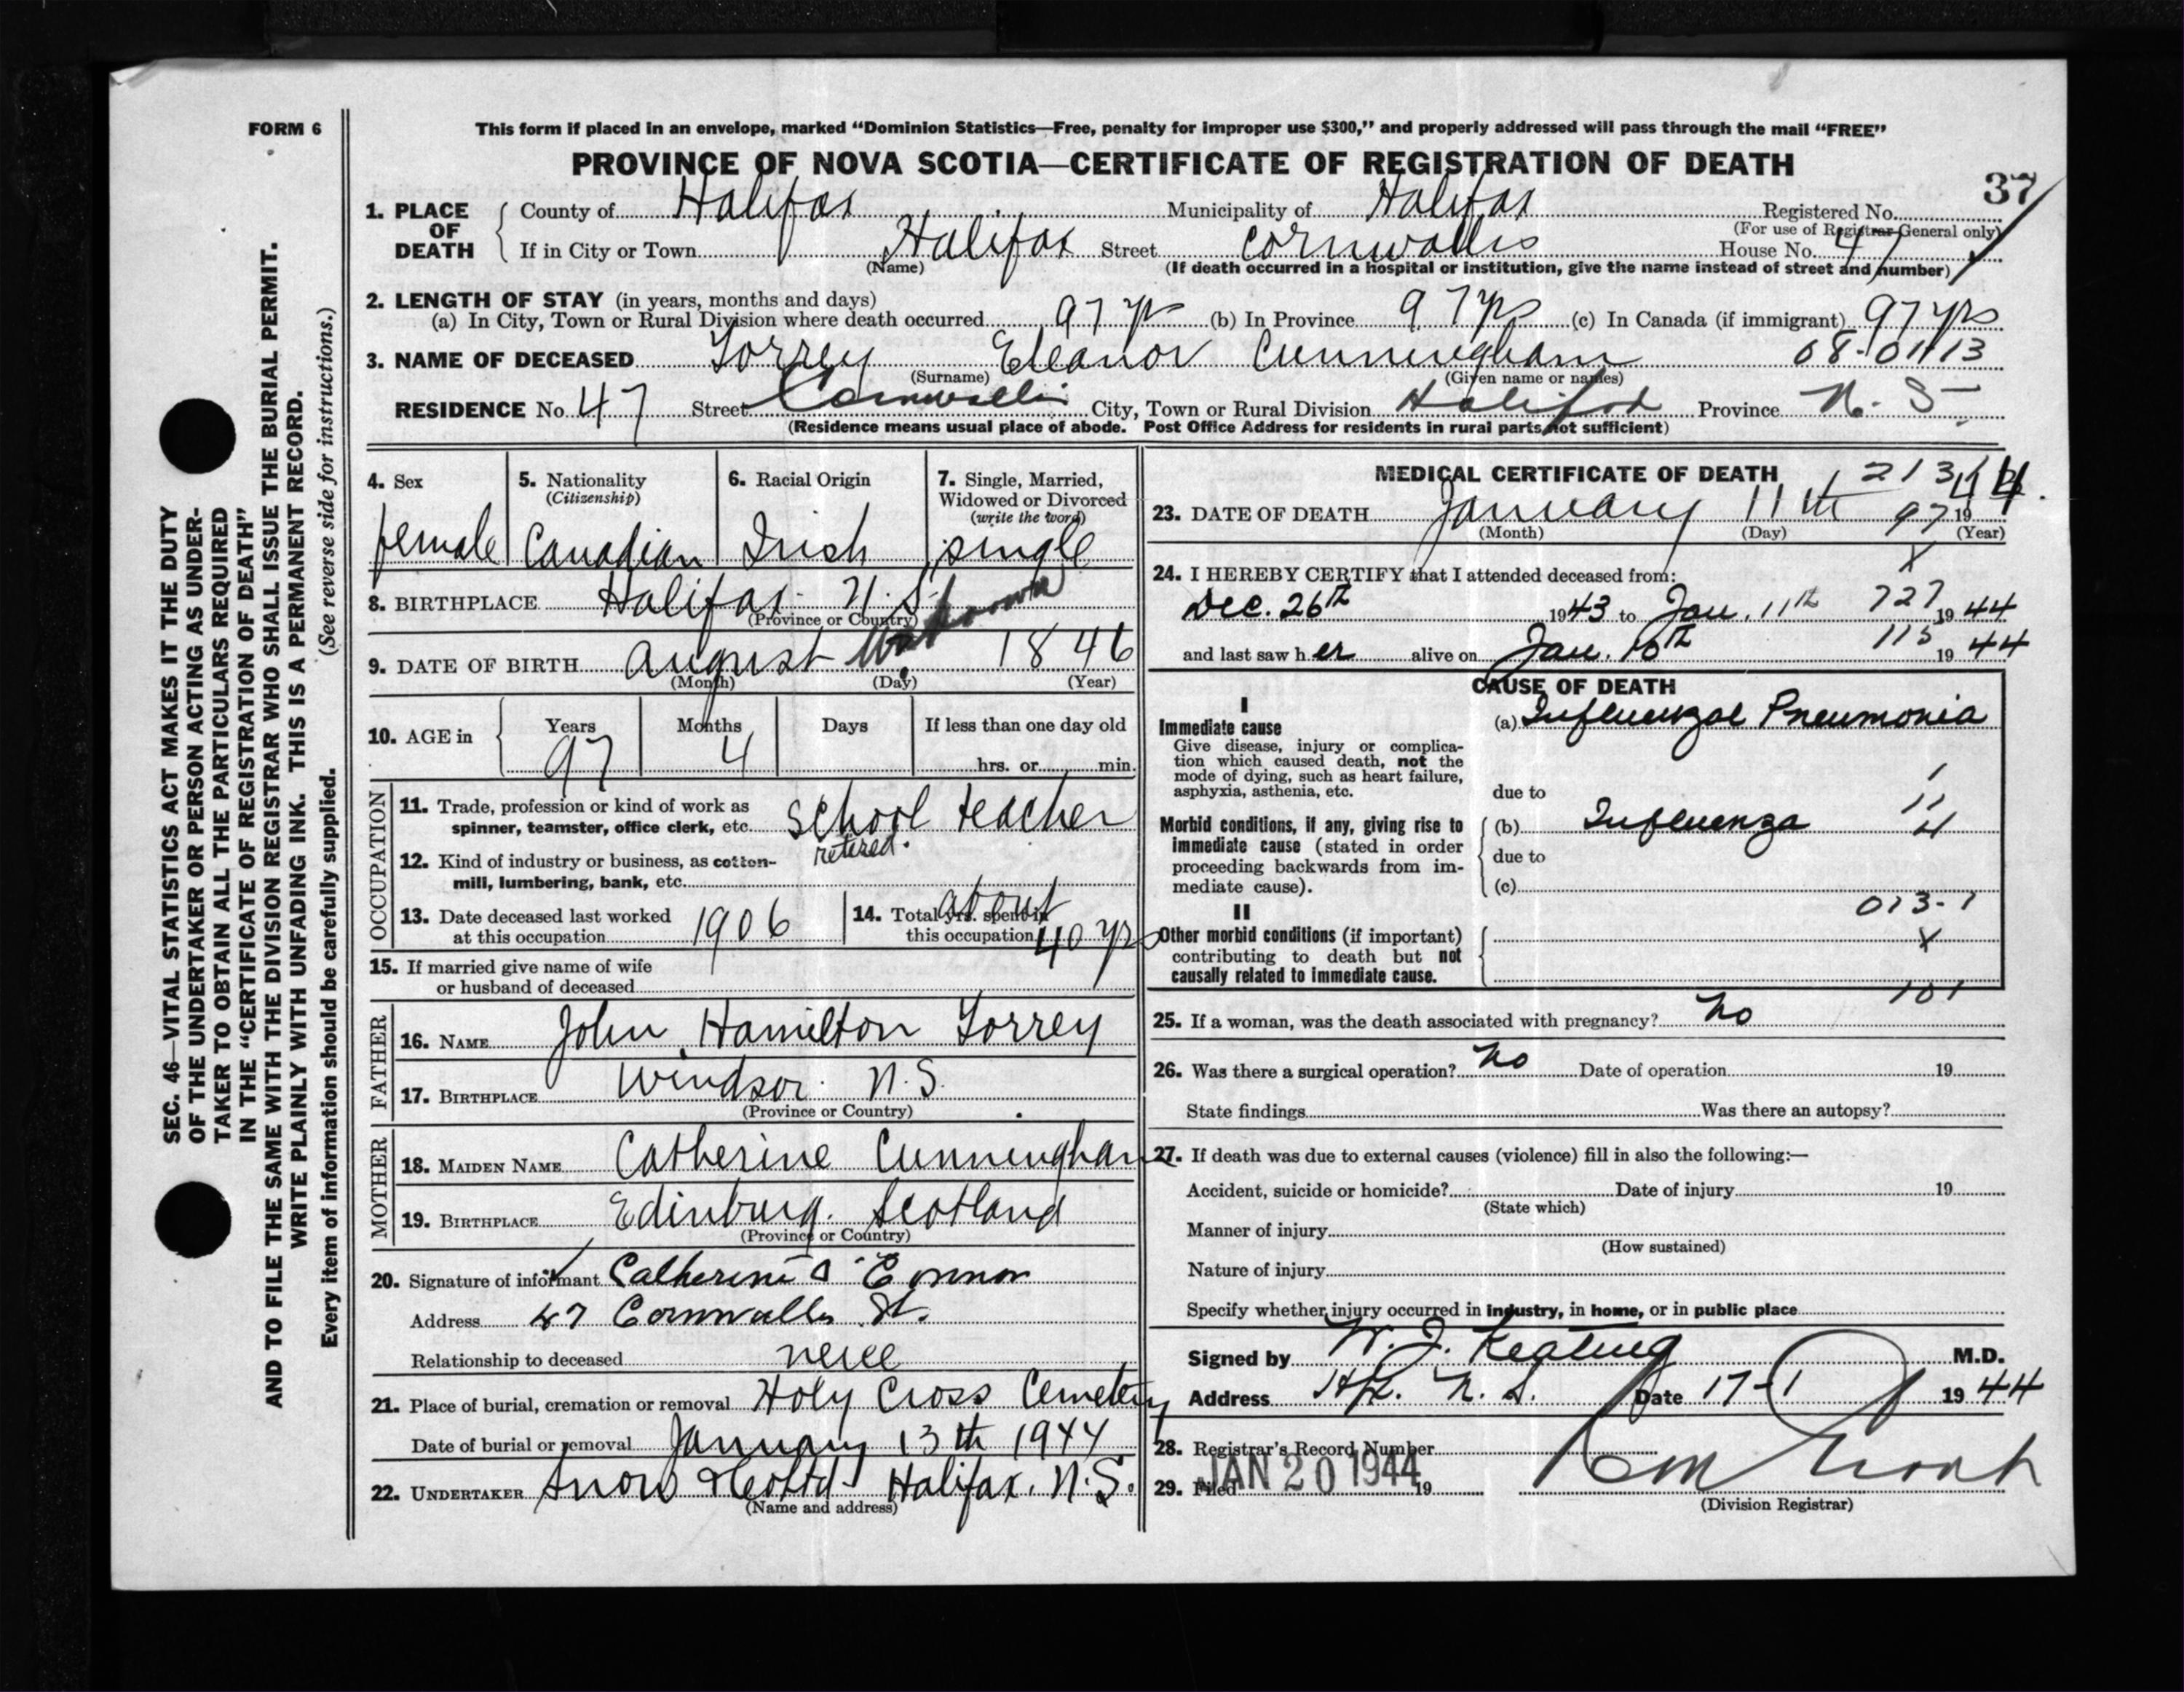 FORM 6
This form if placed in an envelope, marked “Dominion Statistics—Free, penalty for improper use $300,” and properly addressed will pass through the mail “FREE”
PROVINCE OF NOVA SCOTIA—CERTIFICATE OF REGISTRATION OF DEATH
37
1. PLACE OF DEATH
County of Halifax Municipality of Halifax Registered No.
(For use of Registrar-General only)
If in City or Town Halifax Street Cornwallis House No. 47
(Name) (If death occurred in a hospital or institution, give the name instead of street and number)
2. LENGTH OF STAY (in years, months and days)
(a) In City, Town or Rural Division where death occurred 97 yrs (b) In Province 97 yrs (c) In Canada (if immigrant) 97 yrs
3. NAME OF DECEASED Torrey Eleanor Cunningham 08-01113
(Surname) (Given name or names)
RESIDENCE No. 47 Street Cornwallis City, Town or Rural Division Halifax Province N. S
(Residence means usual place of abode. Post Office Address for residents in rural parts not sufficient)
4. Sex
female
5. Nationality
(Citizenship)
Canadian
6. Racial Origin
Irish
7. Single, Married,
Widowed or Divorced
(write the word)
single
8. BIRTHPLACE Halifax N. S.
(Province or Country)
9. DATE OF BIRTH August unknown 1846
(Month) (Day) (Year)
10. AGE in Years Months Days If less than one day old
97 4 hrs. or min.
OCCUPATION
11. Trade, profession or kind of work as
spinner, teamster, office clerk, etc. School teacher
retired.
12. Kind of industry or business, as cotton-
mill, lumbering, bank, etc.
13. Date deceased last worked
at this occupation 1906
14. Total yrs. spent in
this occupation about 40 yrs
15. If married give name of wife
or husband of deceased
FATHER
16. NAME John Hamilton Torrey
17. BIRTHPLACE Windsor N.S.
(Province or Country)
MOTHER
18. MAIDEN NAME Catherine Cunningham
19. BIRTHPLACE Edinburg. Scotland
(Province or Country)
20. Signature of informant Catherine O'Connor
Address 47 Cornwallis St.
Relationship to deceased neice
21. Place of burial, cremation or removal Holy Cross Cemetery
Date of burial or removal January 13th 1944
22. UNDERTAKER Snow & Co Ltd Halifax. N.S.
(Name and address)
MEDICAL CERTIFICATE OF DEATH 213
23. DATE OF DEATH January 11th 97 19 44
(Month) (Day) (Year)
X
24. I HEREBY CERTIFY that I attended deceased from:
Dec. 26th 1943 to Jan. 11th 727 19 44
and last saw her alive on Jan. 10th 115 19 44
CAUSE OF DEATH
I
Immediate cause
Give disease, injury or complica-
tion which caused death, not the
mode of dying, such as heart failure,
asphyxia, asthenia, etc.
(a) Influenzal Pneumonia
due to
Morbid conditions, if any, giving rise to
immediate cause (stated in order
proceeding backwards from im-
mediate cause).
(b) Influenza
due to
(c)
013-1
II
Other morbid conditions (if important)
contributing to death but not
causally related to immediate cause.
X
101
25. If a woman, was the death associated with pregnancy? No
26. Was there a surgical operation? No Date of operation 19
State findings Was there an autopsy?
27. If death was due to external causes (violence) fill in also the following:—
Accident, suicide or homicide? Date of injury 19
(State which)
Manner of injury
(How sustained)
Nature of injury
Specify whether injury occurred in industry, in home, or in public place
Signed by W. J. Keating M.D.
Address Hfx. N. S. Date 17-1 1944
28. Registrar's Record Number
29. Filed JAN 20 1944 19
(Division Registrar)
SEC. 46—VITAL STATISTICS ACT MAKES IT THE DUTY
OF THE UNDERTAKER OR PERSON ACTING AS UNDER-
TAKER TO OBTAIN ALL THE PARTICULARS REQUIRED
IN THE “CERTIFICATE OF REGISTRATION OF DEATH”
AND TO FILE THE SAME WITH THE DIVISION REGISTRAR WHO SHALL ISSUE THE BURIAL PERMIT.
WRITE PLAINLY WITH UNFADING INK. THIS IS A PERMANENT RECORD.
Every item of information should be carefully supplied. (See reverse side for instructions.)